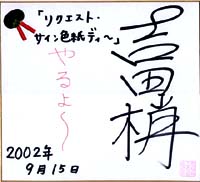 「リクエスト・
サイン色紙ディ～」
やるよ～
吉田梅
2002年
9月15日